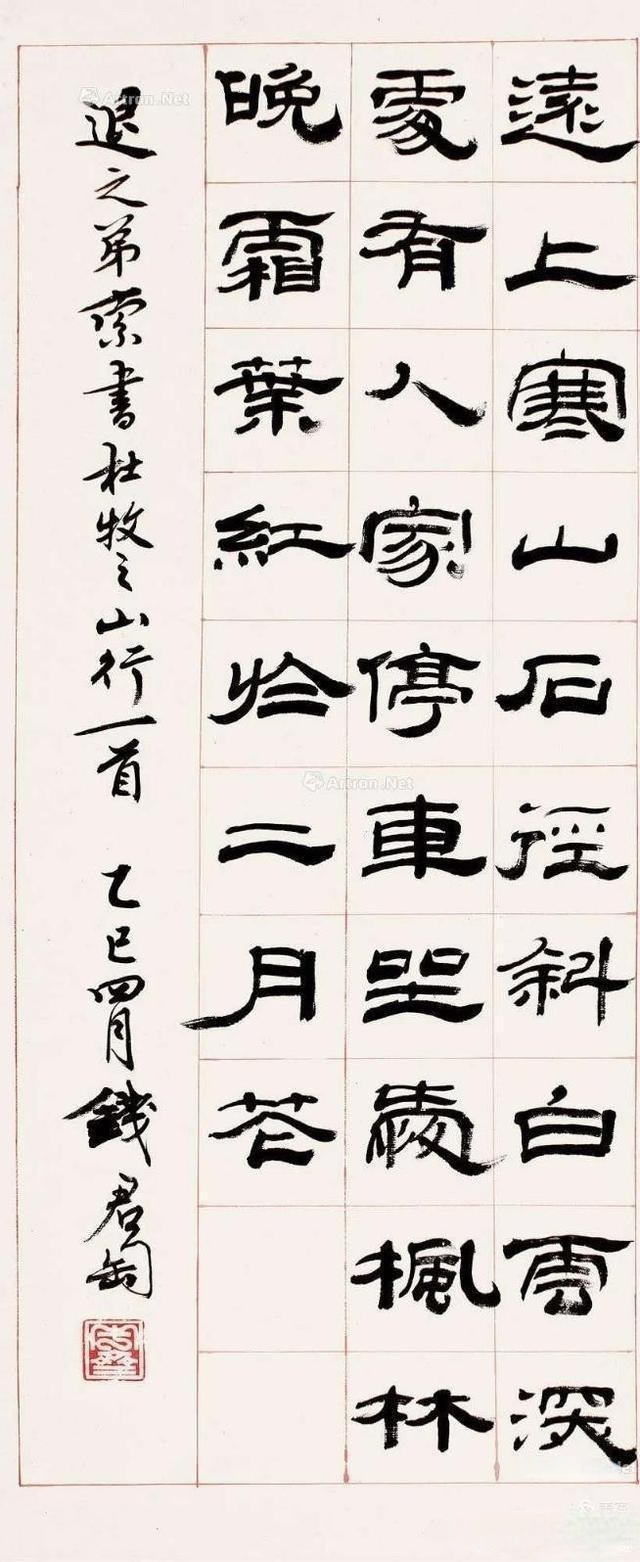 遠上寒山石徑斜白雲深
處有人家停車坐愛楓林
晚霜葉紅於二月花
退之弟索書杜牧之山行一首 乙巳四月 錢君匋
Artron.Net
Artron.Net